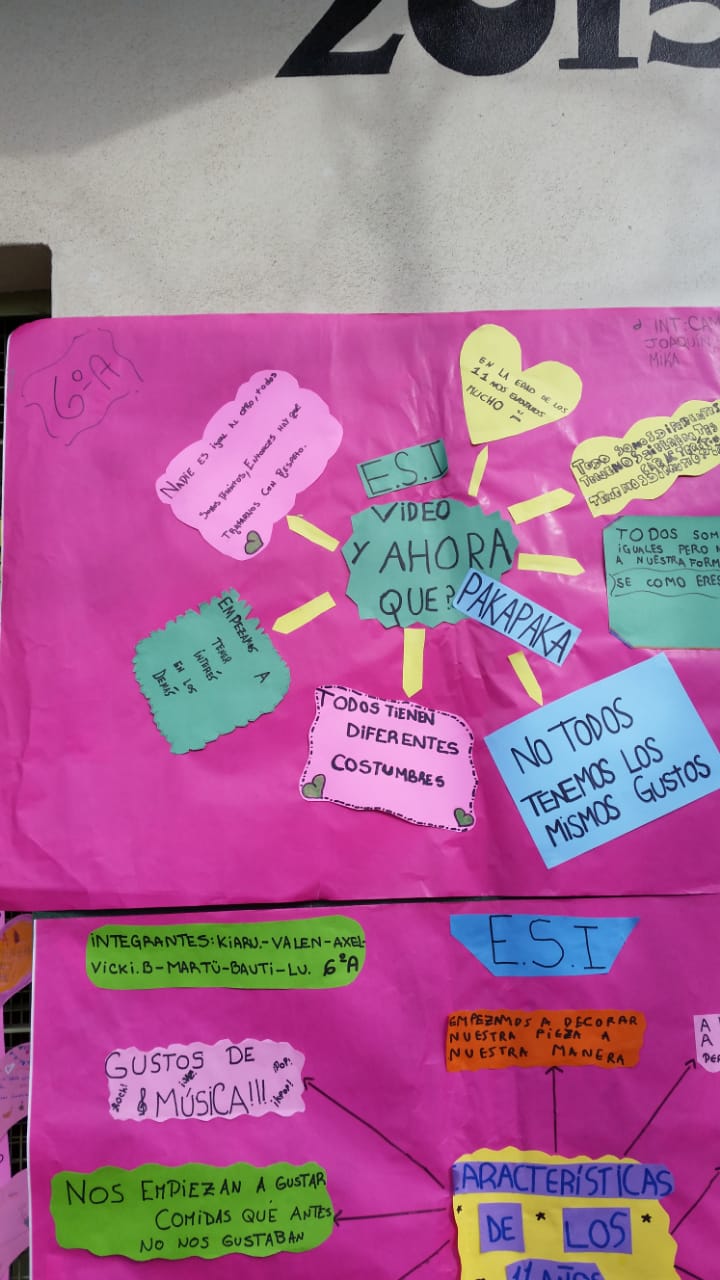 2015
6º A
INT: CAM
JOAQUÍN,
MIKA
EN LA EDAD DE LOS
11 NOS
MUCHO
NADIE ES IGUAL AL OTRO, TODOS
SOMOS DISTINTOS, ENTONCES HAY QUE
TRATARNOS CON RESPETO.
E.S.I
VIDEO
Y AHORA
QUE?
PAKAPAKA
TODOS SOM
IGUALES PERO
A NUESTRA FORM
SE COMO ERES
EMPEZAMOS A
TENER
INTERÉS
EN LOS
DEMÁS
TODOS TIENEN
DIFERENTES
COSTUMBRES
NO TODOS
TENEMOS LOS
MISMOS GUSTOS
INTEGRANTES: KIARU.-VALEN-AXEL-
VICKI.B-MARTÜ-BAUTI-LU. 6ºA
E.S.I
EMPEZAMOS A DECORAR
NUESTRA PIEZA A
NUESTRA MANERA
A
A
PER
GUSTOS DE
MÚSICA!!!
ROCK!
¡POP!
¡KPOP!
NOS EMPIEZAN A GUSTAR
COMIDAS QUE ANTES
NO NOS GUSTABAN
CARACTERÍSTICAS
* DE * LOS *
11 AÑOS